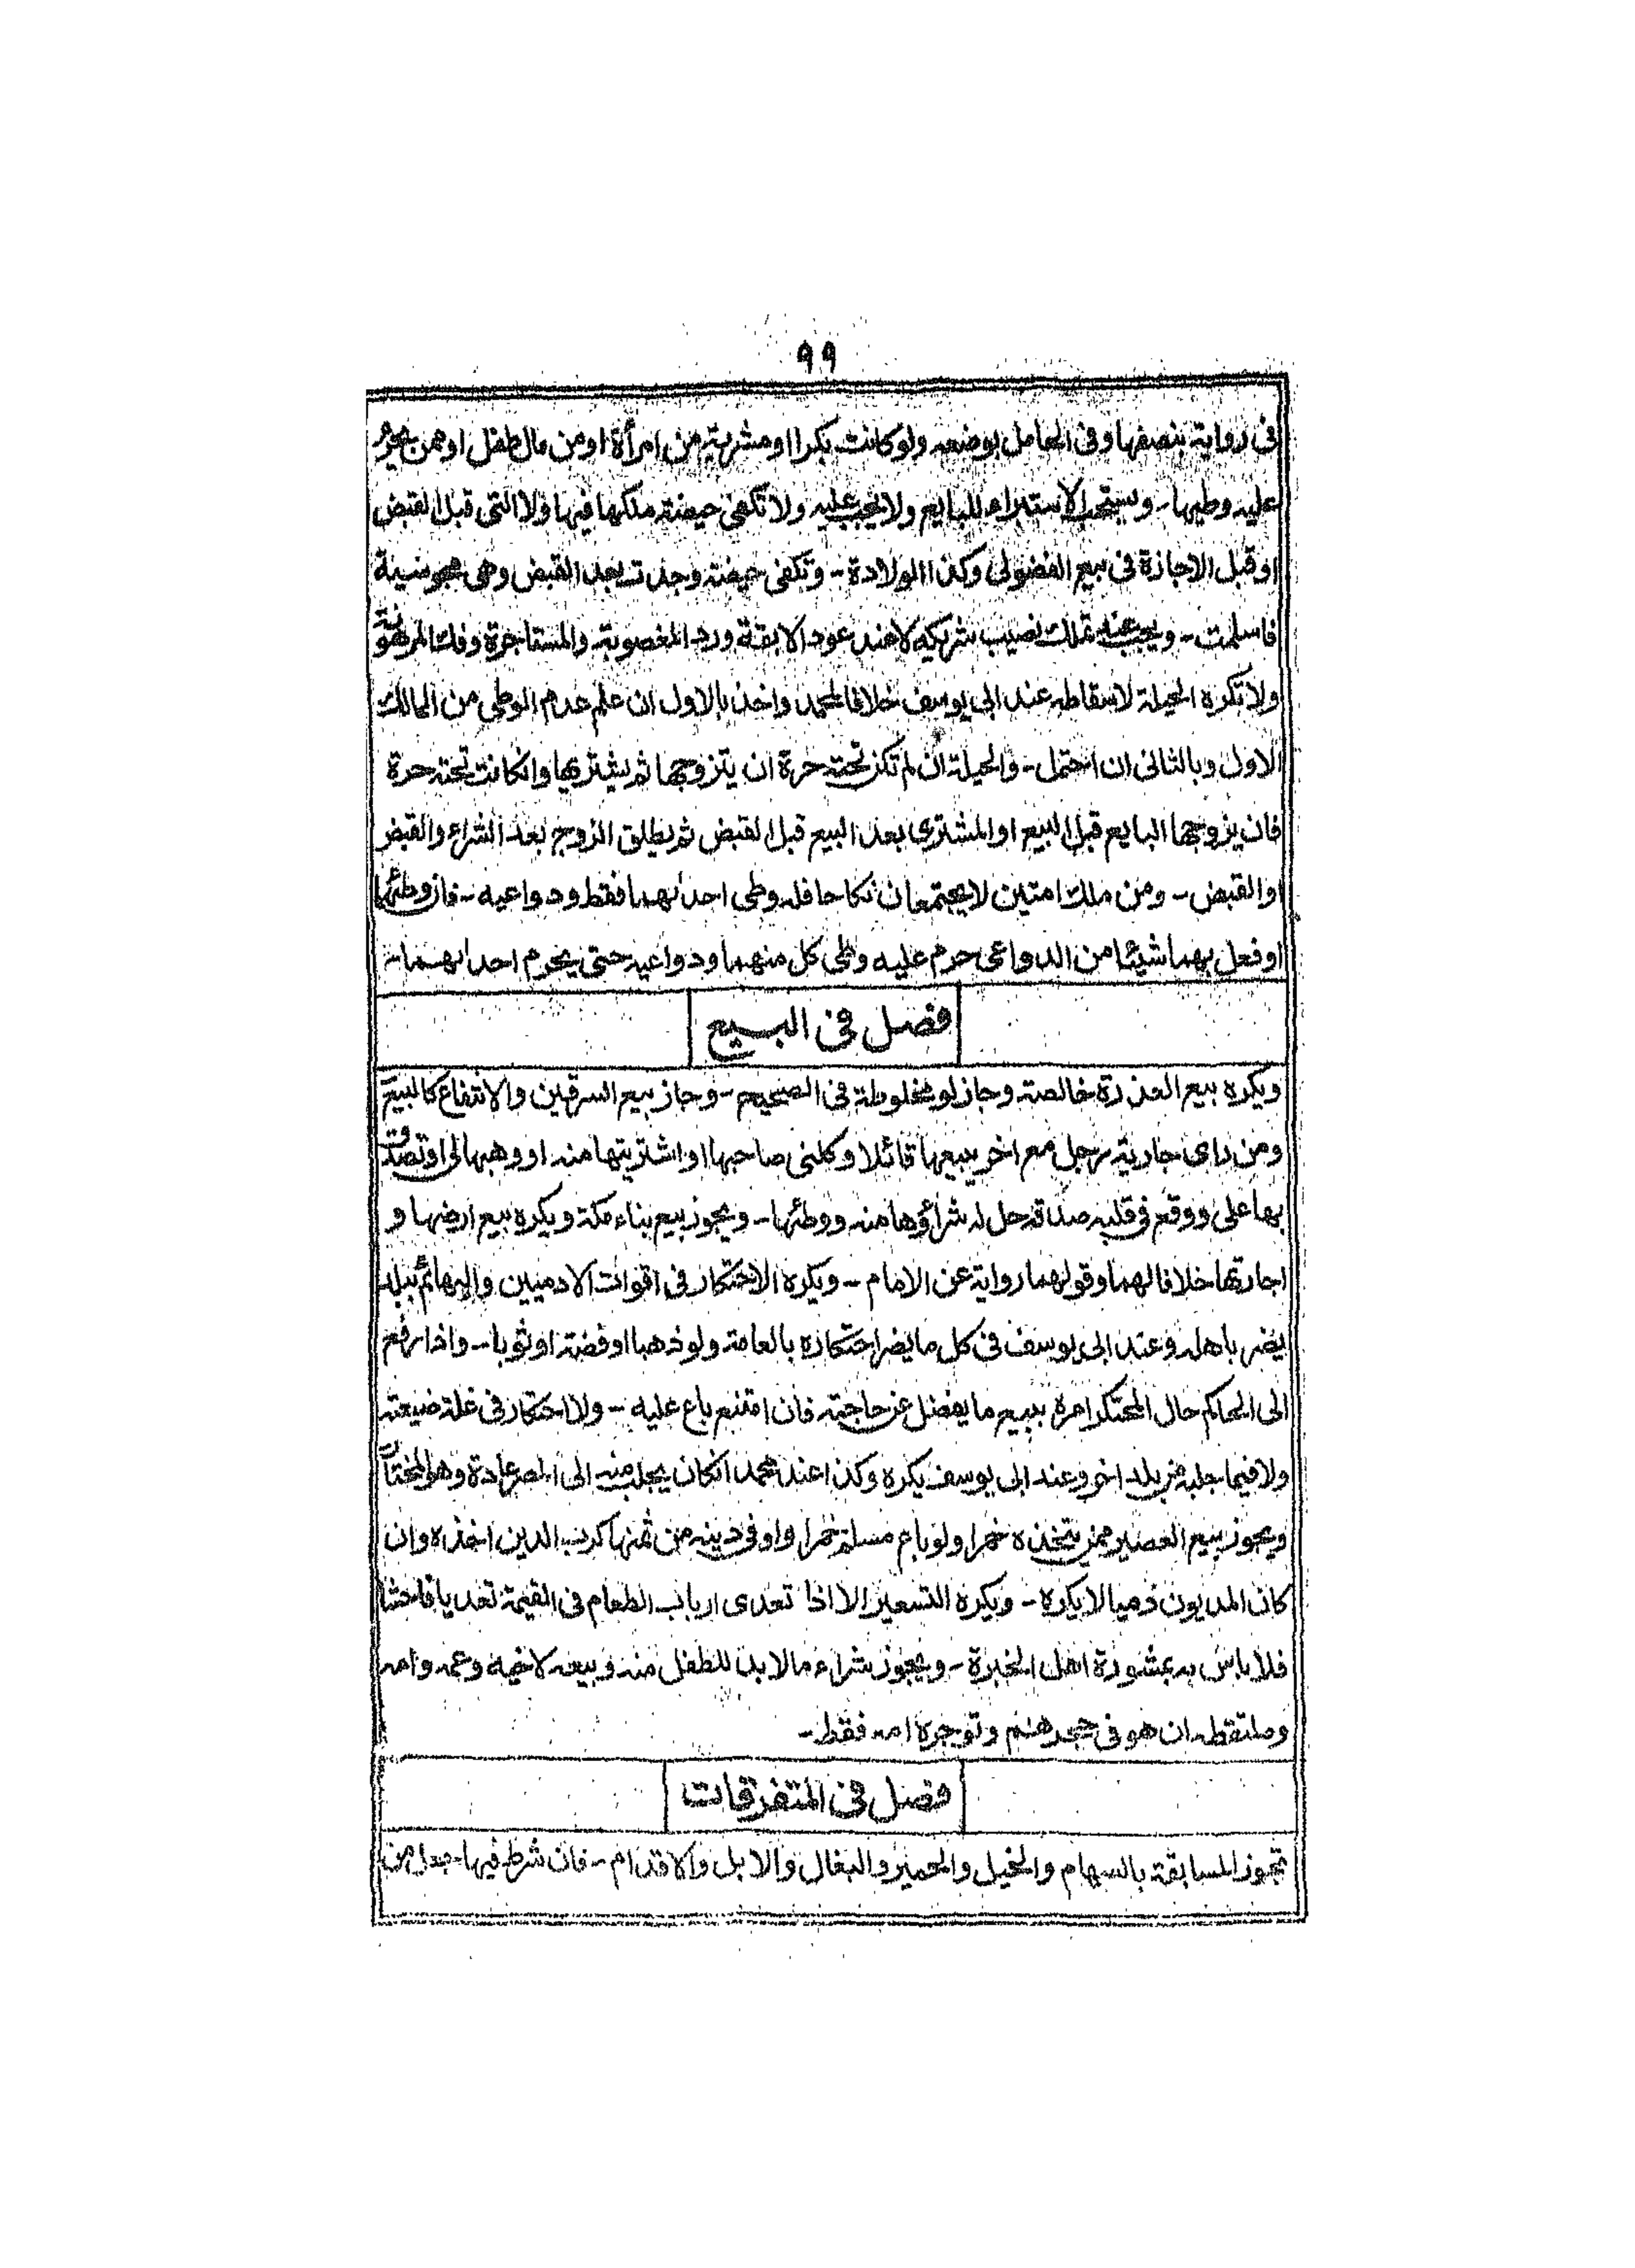 ٩٩
فى رواية بنصفها وفى الحامل بوضعه ولو كانت بكرا او مشرية من امرأة او من مال طفل او ممن يحرم
عليه وطيها- ويستحب الاستبراء للبايع ولا يجب عليه ولا تكفى حيضة ملكها فيها ولا التى قبل القبض
او قبل الاجازة فى بيع الفضولى وكذا الولادة- وتكفى حيضة وجدت بعد القبض وهى مجوسية
فاسلمت- ويجب عند تملك نصيب شريكه لا عند عود الابقة ورد المغصوبة والمستاجرة وفك المرهونة
ولا تكره الحيلة لاسقاطه عند ابى يوسف خلافا لمحمد واخذ بالاول ان علم عدم الوطى من المالك
الاول وبالثانى ان احتمل- والحيلة ان لم تكن تحته حرة ان يتزوجها ثم يشتريها وانكانت تحته حرة
فان يزوجها البايع قبل البيع او المشترى بعد البيع قبل القبض ثم يطلق الزوج بعد الشراء والقبض
او القبض- ومن ملك امتين لا يجتمعان نكاحا فله وطى احدٰىهما فقط ودواعيه- فان وطئها
او فعل بهما شيئا من الدواعى حرم عليه وطى كل منهما ودواعيه حتى يحرم احدٰىهما-
فصل فى البيع
ويكره بيع العذرة خالصة وجاز لو مخلوطة فى الصحيح- وجاز بيع السرقين والانتفاع كالبيع
ومن راى جارية رجل مع اخر يبيعها قائلا وكلنى صاحبها او اشتريتها منه او وهبها لى او تصدق
بها على ووقع فى قلبه صدقه حل له شراؤها منه ووطئها- ويجوز بيع بناء مكة ويكره بيع ارضها و
اجارتها خلافا لهما وقولهما رواية عن الامام- ويكره الاحتكار فى اقوات الادميين والبهائم ببلد
يضر باهله وعند ابى يوسف فى كل ما يضر احتكاره بالعامة ولو ذهبا او فضة او ثوبا- واذا رفع
الى الحاكم حال المحتكر امره ببيع ما يفضل عن حاجته فان امتنع باع عليه- ولا احتكار فى غلة ضيعته
ولا فيما جلبه من بلد اخر وعند ابى يوسف يكره وكذا عند محمد انكان يجلب منه الى المصر عادة وهو المختار
ويجوز بيع العصير ممن يتخذه خمرا ولو باع مسلم خمرا واوفى دينه من ثمنها كره لرب الدين اخذه وان
كان المديون ذميا لا يكره- ويكره التسعير الا اذا تعدى ارباب الطعام فى القيمة تعديا فاحشا
فلا باس به بمشورة اهل الخبرة- ويجوز شراء ما لا بد للطفل منه وبيعه لاخيه وعمه وامه
وملتقطه ان هو فى حجرهم وتوجره امه فقط-
فصل فى المتفرقات
تجوز المسابقة بالسهام والخيل والحمير والبغال والابل والاقدام- فان شرط فيها جعل من